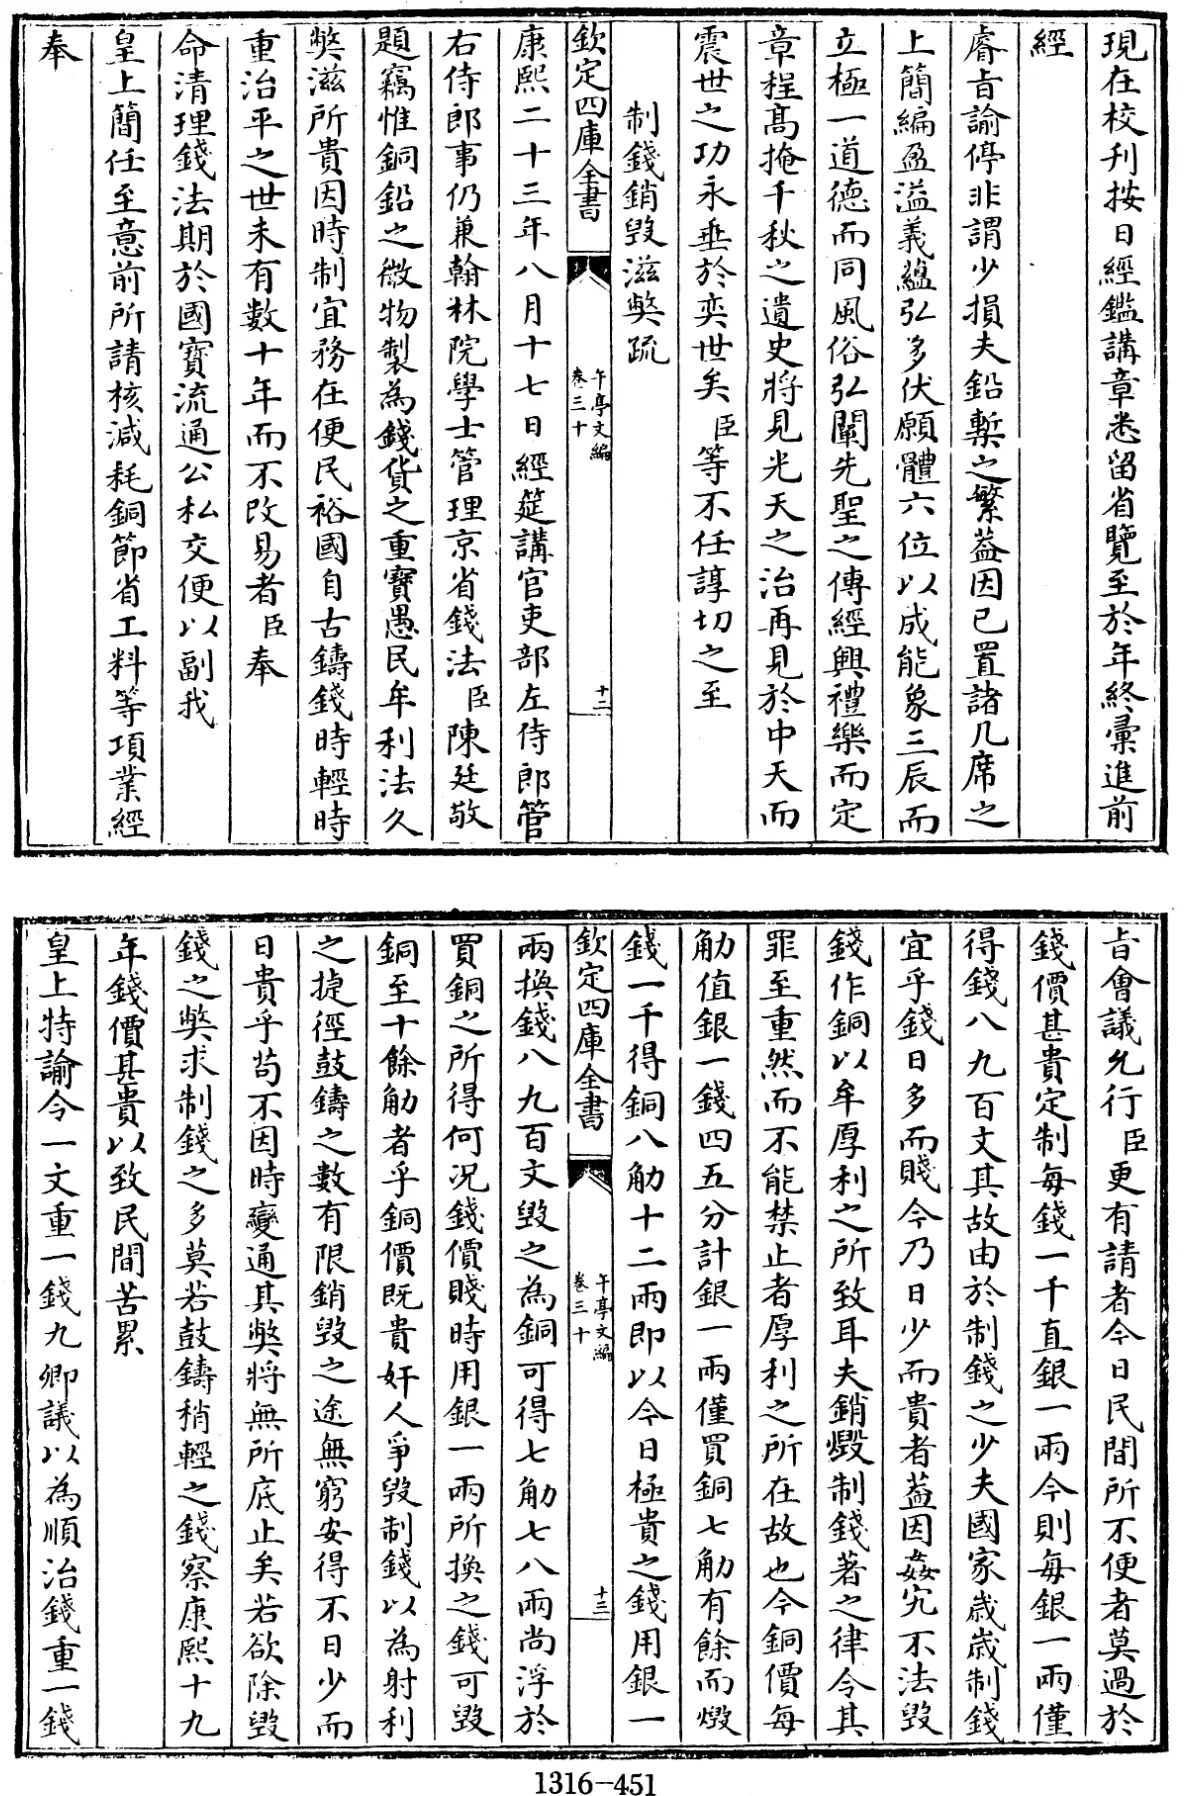 現在校刋按日經鑑講章悉留省覽至於年終彚進前
經
睿㫖諭停非謂少損夫鉛槧之繁葢因已置諸几席之
上簡編盈溢義藴弘多伏願體六位以成能象三辰而
立極一道德而同風俗弘闡先聖之傳經興禮樂而定
章程髙掩千秋之遺史將見光天之治再見於中天而
震世之功永垂於奕世矣臣等不任諄切之至
制錢銷毁滋弊疏
欽定四庫全書
午亭文編
卷三十
十二
康熙二十三年八月十七日經筵講官吏部左侍郎管
右侍郎事仍兼翰林院學士管理京省錢法臣陳廷敬
題竊惟銅鉛之微物製為錢貨之重寳愚民牟利法久
弊滋所貴因時制宜務在便民裕國自古鑄錢時輕時
重治平之世未有數十年而不改易者臣奉
命清理錢法期於國寳流通公私交便以副我
皇上簡任至意前所請核減耗銅節省工料等項業經
奉
㫖會議允行臣更有請者今日民間所不便者莫過於
錢價甚貴定制每錢一千直銀一兩今則每銀一兩僅
得錢八九百文其故由於制錢之少夫國家歳歳制錢
宜乎錢日多而賤今乃日少而貴者葢因姦宄不法毁
錢作銅以牟厚利之所致耳夫銷燬制錢著之律令其
罪至重然而不能禁止者厚利之所在故也今銅價每
觔值銀一錢四五分計銀一兩僅買銅七觔有餘而燬
錢一千得銅八觔十二兩即以今日極貴之錢用銀一
欽定四庫全書
午亭文編
卷三十
十三
兩換錢八九百文毁之為銅可得七觔七八兩尚浮於
買銅之所得何况錢價賤時用銀一兩所換之錢可毁
銅至十餘觔者乎銅價既貴奸人爭毁制錢以為射利
之捷徑鼓鑄之數有限銷毁之途無窮安得不日少而
日貴乎茍不因時變通其弊將無所底止矣若欲除毁
錢之弊求制錢之多莫若鼓鑄稍輕之錢察康熙十九
年錢價甚貴以致民間苦累
皇上特諭令一文重一錢九卿議以為順治錢重一錢
1316-451